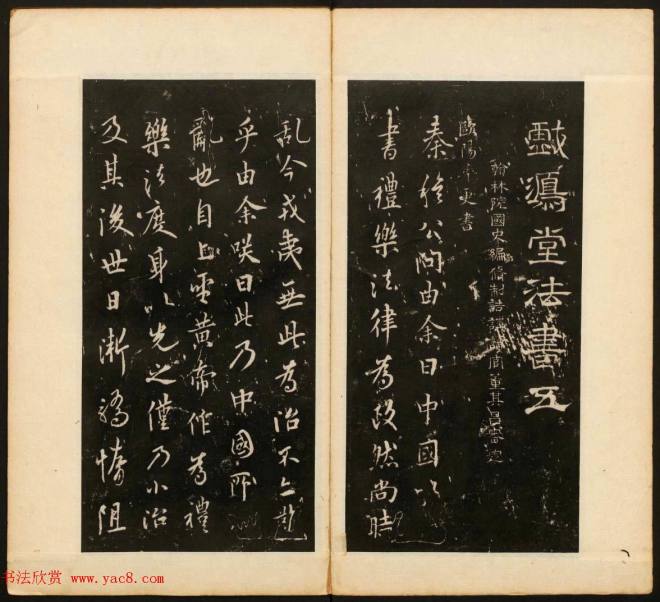 戲鴻堂法書五
翰林院國史編脩制誥
董其昌審定
歐陽率更書
秦穆公問由余曰中國以
書禮樂法律為政然尚時
乱今戎夷無此為治不亦難
乎由余咲曰此乃中國所
亂也自上聖黄帝作為禮
樂法度身以先之僅乃小治
及其後世日漸驕惰阻
书法欣赏 www.yac8.com